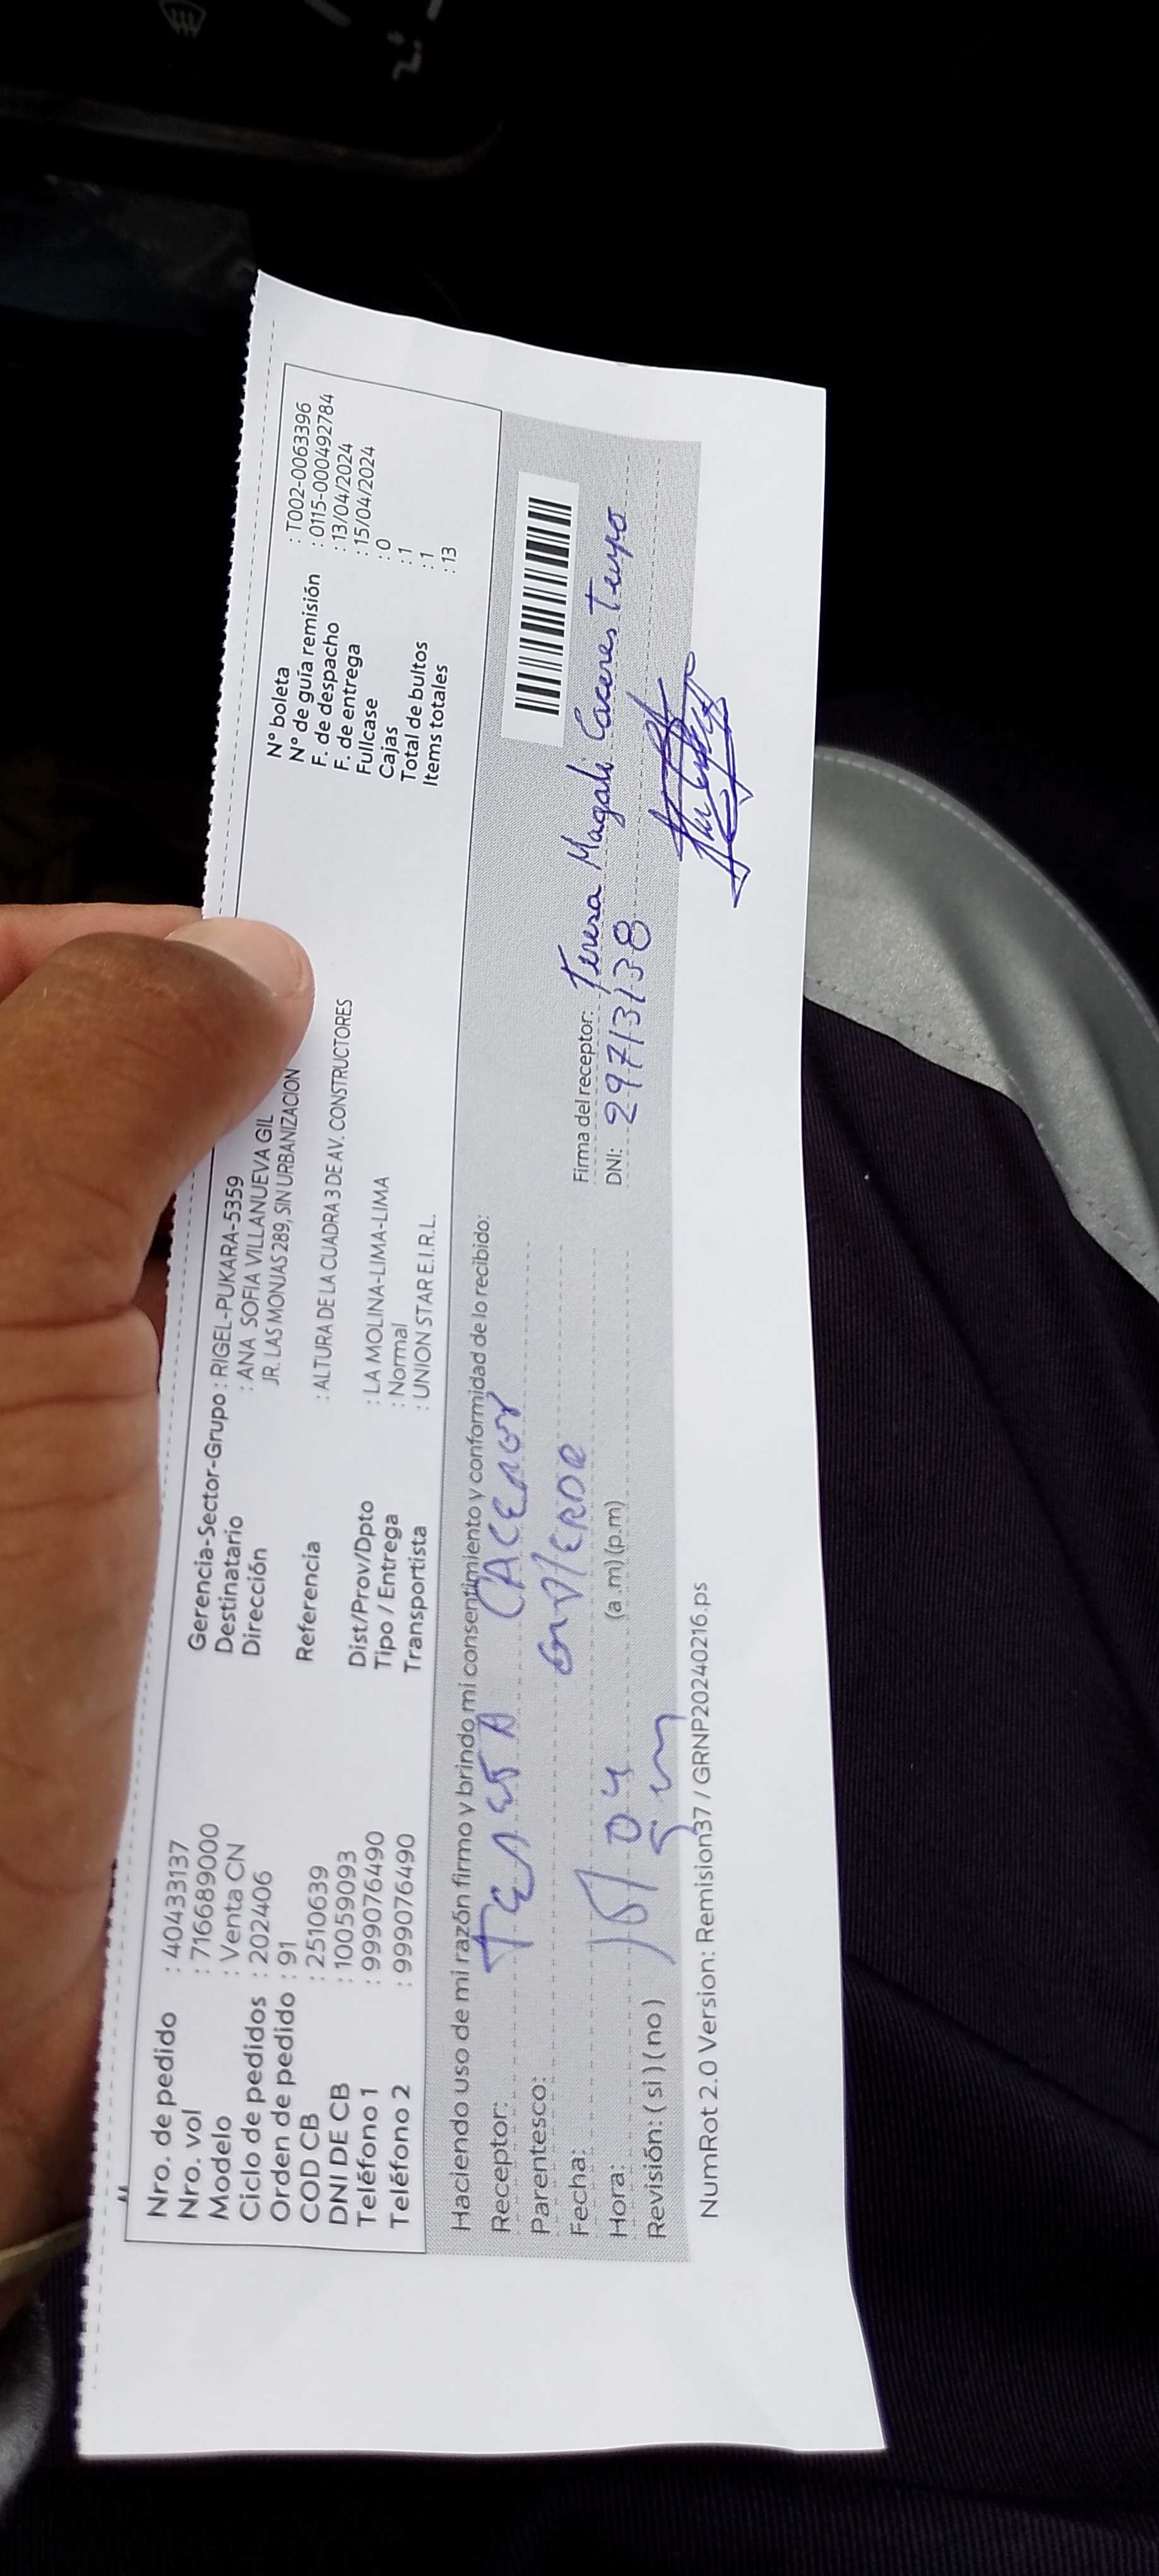 Nro. de pedido : 40433137
Nro. vol : 716689000
Modelo : Venta CN
Ciclo de pedidos : 202406
Orden de pedido : 91
COD CB : 2510639
DNI DE CB : 10059093
Teléfono 1 : 999076490
Teléfono 2 : 999076490
Gerencia-Sector-Grupo : RIGEL-PUKARA-5359
Destinatario : ANA SOFIA VILLANUEVA GIL
Dirección JR. LAS MONJAS 289, SIN URBANIZACION
Referencia : ALTURA DE LA CUADRA 3 DE AV. CONSTRUCTORES
Dist/Prov/Dpto : LA MOLINA-LIMA-LIMA
Tipo / Entrega : Normal
Transportista : UNION STAR E.I.R.L.
N° boleta : T002-0063396
N° de guía remisión : 0115-000492784
F. de despacho : 13/04/2024
F. de entrega : 15/04/2024
Fullcase : 0
Cajas : 1
Total de bultos : 1
Items totales : 13
Haciendo uso de mi razón firmo y brindo mi consentimiento y conformidad de lo recibido:
Receptor: TERESA
Parentesco:
Fecha: 15/04
Hora: (a.m) (p.m)
Revisión: ( si ) ( no )
Firma del receptor: Teresa Magali Caceres
DNI: 29713138
NumRot 2.0 Version: Remision37 / GRNP20240216.ps